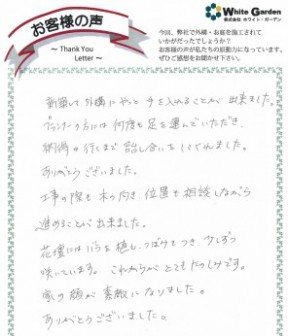 お客様の声
～ Thank You
Letter～
White Garden
株式会社 ホワイト・ガーデン
今回、弊社で外構・お庭を施工されて
いかがだったでしょうか？
お客様の声が私たちの原動力になっています。
ぜひご感想をお聞かせ下さい。
新築して外構にやっと手を入れることが出来ました。
プランナーの方には何度も足を運んでいただき、
納得の行くまで話し合いをしてくれました。
ありがとうございました。
工事の際も木の向き 位置を相談しながら
進めることが出来ました。
花壇にはバラを植え、つぼみもつき、少しずつ
咲いています。これからがとてもたのしみです。
家の顔が素敵になりました。
ありがとうございました。